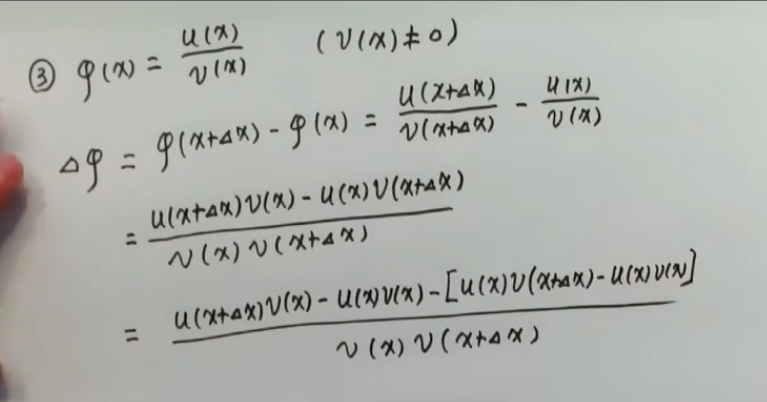 ③ φ(x) = u(x)/v(x) (v(x)≠0)
Δφ = φ(x+Δx) - φ(x) = u(x+Δx)/v(x+Δx) - u(x)/v(x)
= (u(x+Δx)v(x) - u(x)v(x+Δx))/(v(x)v(x+Δx))
= (u(x+Δx)v(x) - u(x)v(x) - [u(x)v(x+Δx) - u(x)v(x)])/(v(x)v(x+Δx))